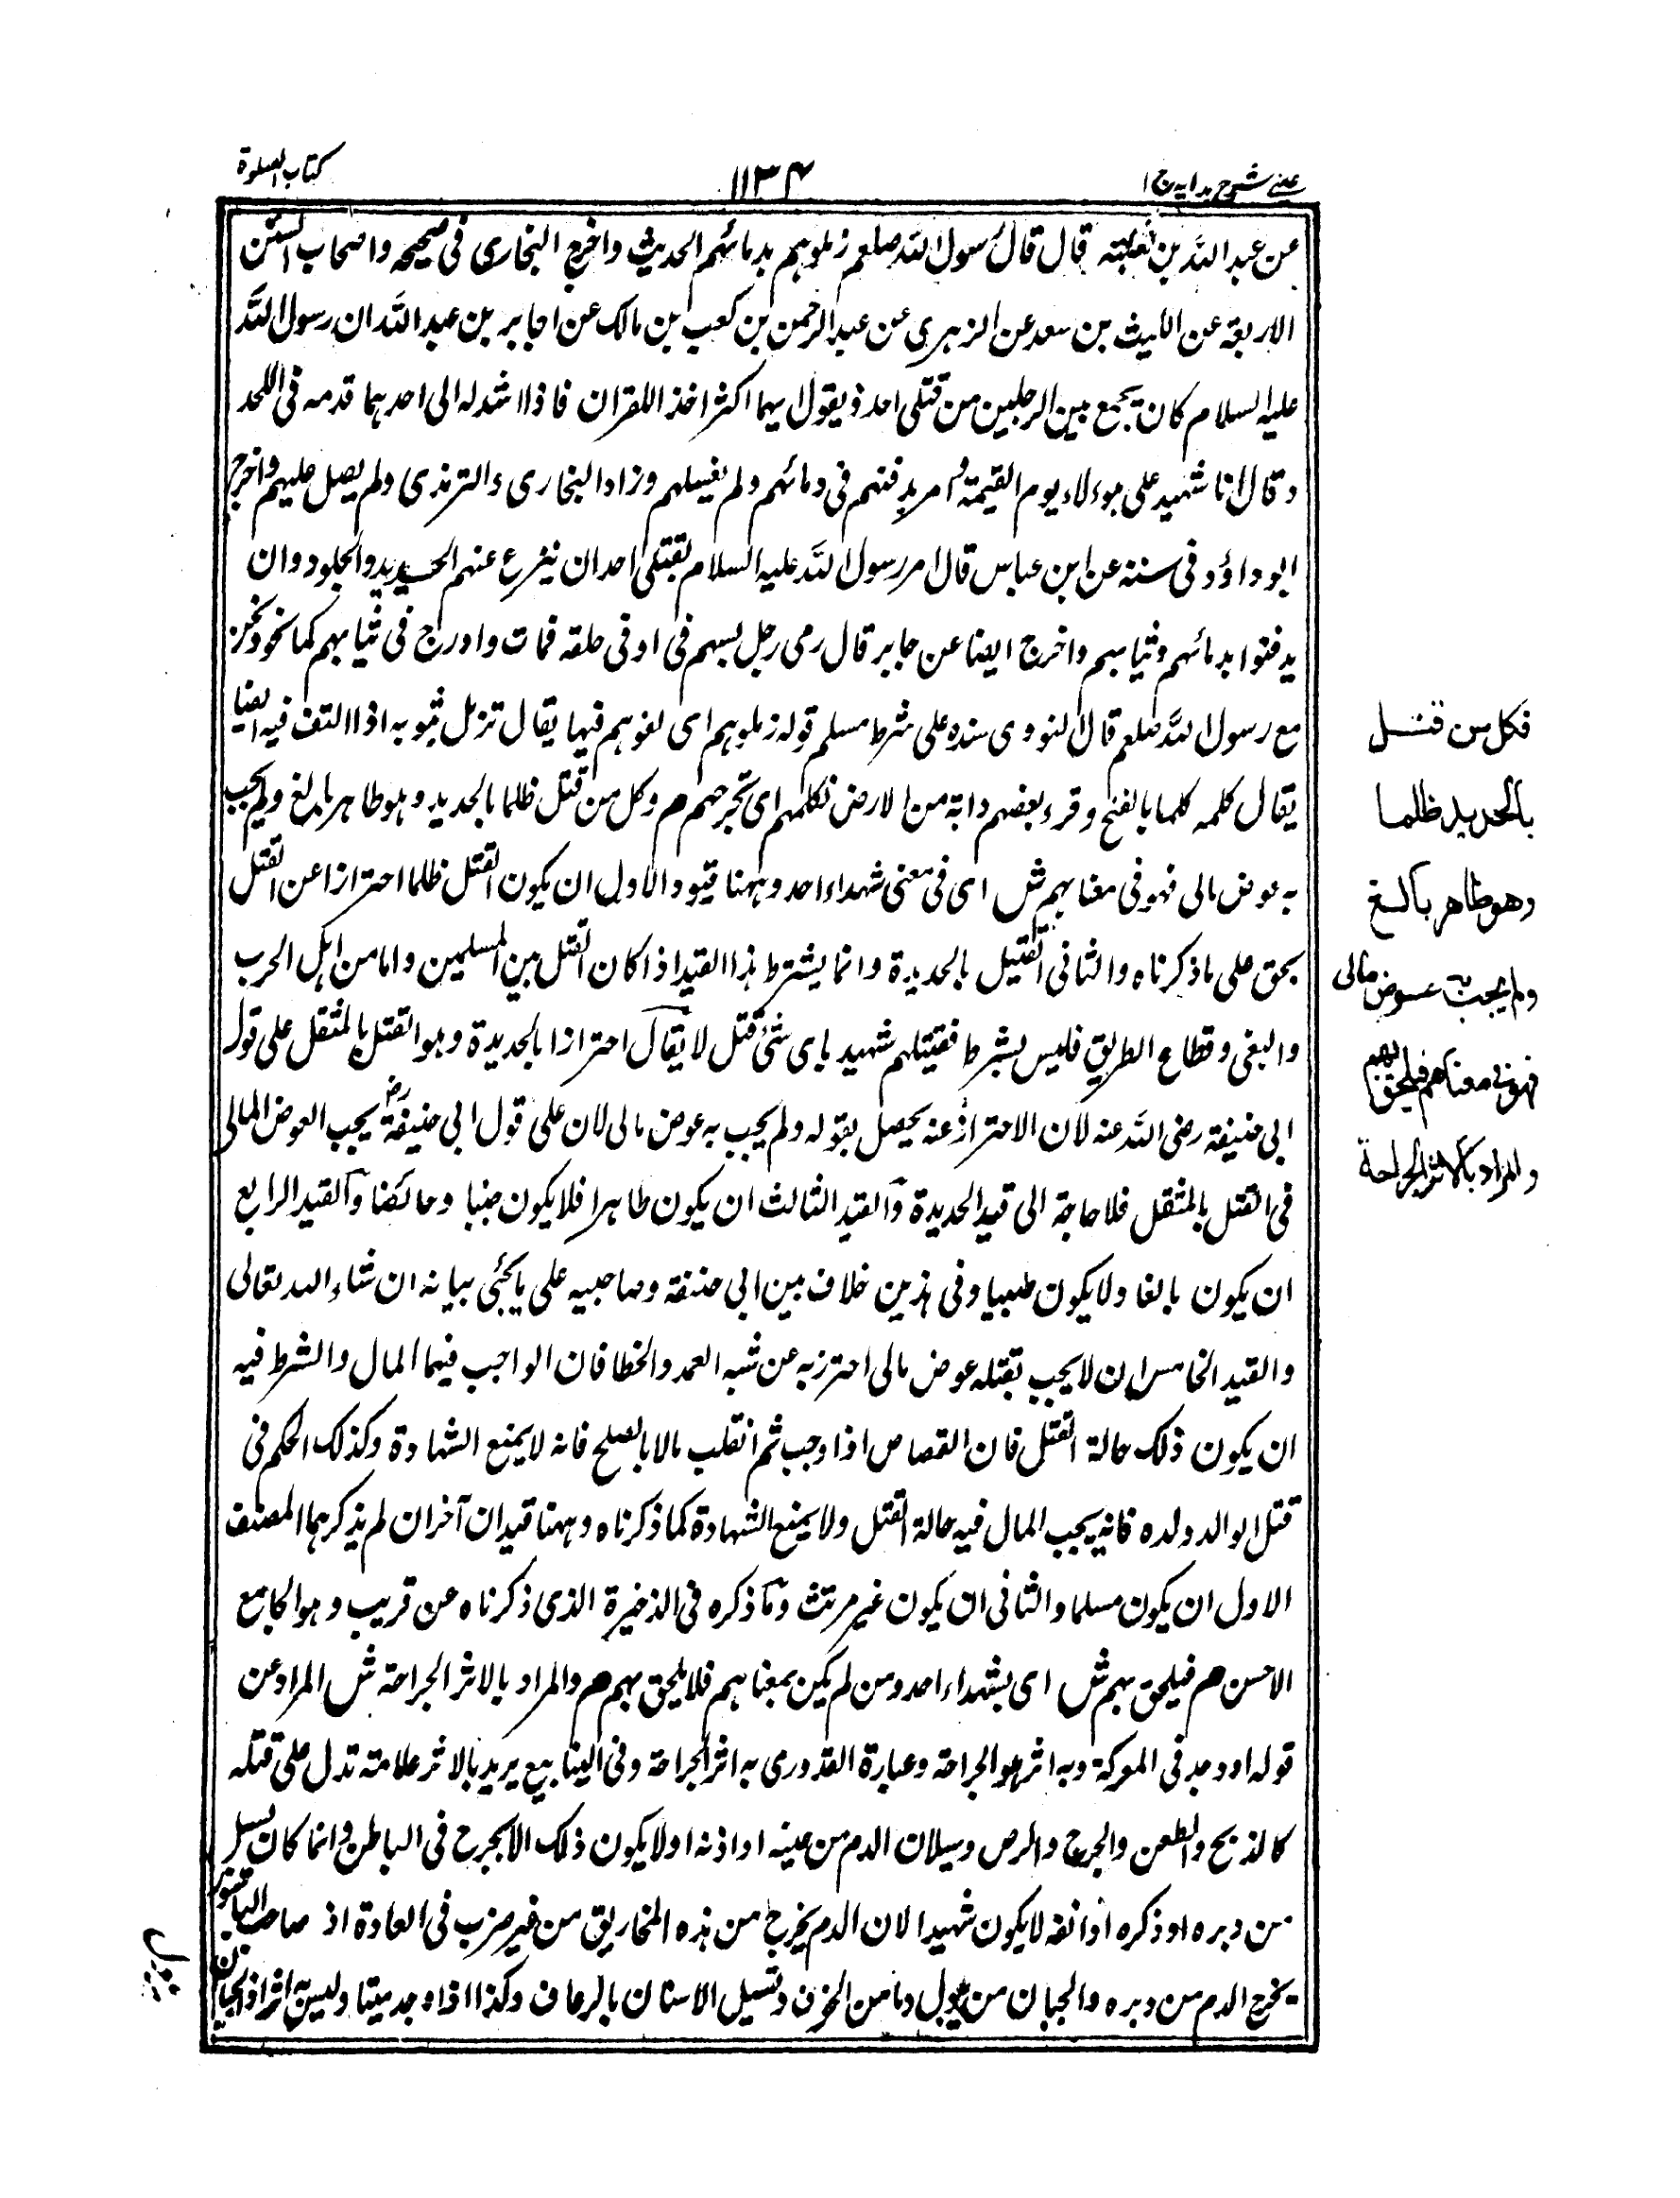 عينى شرح هدايه ج ا
١١٣٤
كتاب الصلوة
عن عبد الله بن ثعلبة قال قال رسول الله صلعم زملوهم بدمائهم الحديث واخرج البخارى فى صحيحه واصحاب السنن
الاربعة عن الليث بن سعد عن الزهرى عن عبد الرحمن بن كعب بن مالك عن جابر بن عبد الله ان رسول الله
عليه السلام كان يجمع بين الرجلين من قتلى احد ويقول ايهما اكثر اخذ اللقران فاذا اشد له الى احدهما قدمه فى اللحد
وقال انا شهيد على هولاء يوم القيمة وامر بدفنهم فى دمائهم ولم يغسلهم وزاد البخارى والترمذى ولم يصل عليهم واخرج
ابو داؤد فى سننه عن ابن عباس قال امر رسول الله عليه السلام بقتلى احد ان ينزع عنهم الحديد والجلود وان
يدفنوا بدمائهم وثيابهم واخرج ايضا عن جابر قال رمى رجل بسهم فى او فى حلقه فمات وادرج فى ثيابهم كما نحو ونحن
مع رسول الله صلعم قال النووى سنده على شرط مسلم قوله زملوهم اى لفوهم فيها يقال تزمل بثوبه اذا التف فيه ايضا
يقال كلمه كلما بالفتح وقرء بعضهم دابة من الارض تكلمهم اى تجرحهم م وكل من قتل ظلما بالحديد وهو طاهر بالغ ولم يجب
به عوض مالى فهو فى معناهم ش اى فى معنى شهداء احد وههنا قيود الاول ان يكون القتل ظلما احترازا عن القتل
بحق على ما ذكرناه والثانى القتيل بالحديدة وانما يشترط هذا القيد اذا كان القتل بين المسلمين واما من اهل الحرب
والبغى وقطاع الطريق فليس بشرط فقتيلهم شهيد باى شئ قتل لا يقال احترازا بالحديدة وهو القتل بالمثقل على قول
ابى حنيفة رضى الله عنه لان الاحتراز عنه يحصل بقوله ولم يجب به عوض مالى لان على قول ابى حنيفة رض يجب العوض المالى
فى القتل بالمثقل فلا حاجة الى قيد الحديدة والقيد الثالث ان يكون طاهرا فلا يكون جنبا وحائضا والقيد الرابع
ان يكون بالغا ولا يكون صبيا وفى هذين خلاف بين ابى حنفة وصاحبيه على ياتى بيانه ان شاء الله تعالى
والقيد الخامس ان لا يجب بقتله عوض مالى احترز به عن شبه العمد والخطا فان الواجب فيهما المال والشرط فيه
ان يكون ذلك حالة القتل فان القصاص اذا وجب ثم انقلب مالا بالصلح فانه لا يمنع الشهادة وكذلك الحكم فى
قتل الوالد ولده فانه يجب المال فيه حالة القتل ولا يمنع الشهادة كما ذكرناه وههنا قيدان آخران لم يذكرهما المصنف
الاول ان يكون مسلما والثانى ان يكون غير مرتث وما ذكره فى الذخيرة الذى ذكرناه عن قريب وهو الجامع
الاحسن م فيلحق بهم ش اى بشهداء احد ومن لم يكن بمعناهم فلا يلحق بهم م والمراد بالاثر الجراحة ش المراد عن
قوله او وجد فى المعركة وبه اثر هو الجراحة وعبارة القدورى به اثر الجراحة وفى الينابيع يريد بالاثر علامة تدل على قتله
كالذبح والطعن والجرح والرض وسيلان الدم من عينه او اذنه او لا يكون ذلك الا بجرح فى الباطن وانما كان يسيل
من دبره او ذكره او انفه لا يكون شهيدا لان الدم يخرج من هذه المخاريق من غير ضرب فى العادة اذ صاحب الباسور
يخرج الدم من دبره والجبان من يبول دما من الخوف وتسيل الاسنان بالرعاف وكذا اذا وجد ميتا وليس به اثر اذ الجبان
فكل من قتل
بالحديد ظلما
وهو طاهر بالغ
ولم يجب به عوض مالى
فهو فى معناهم فيلحق بهم
والمراد بالاثر الجراحة